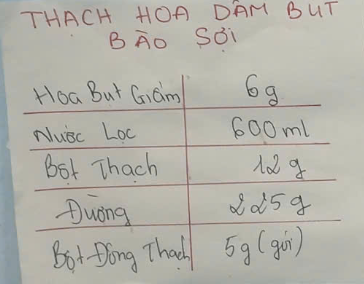 THẠCH HOA DÂM BUT
BÀO SỢI
Hoa But Giấm 6g
Nước Lọc 600ml
Bột Thạch 12g
Đường 225g
Bột Đông Thạch 5g (gói)